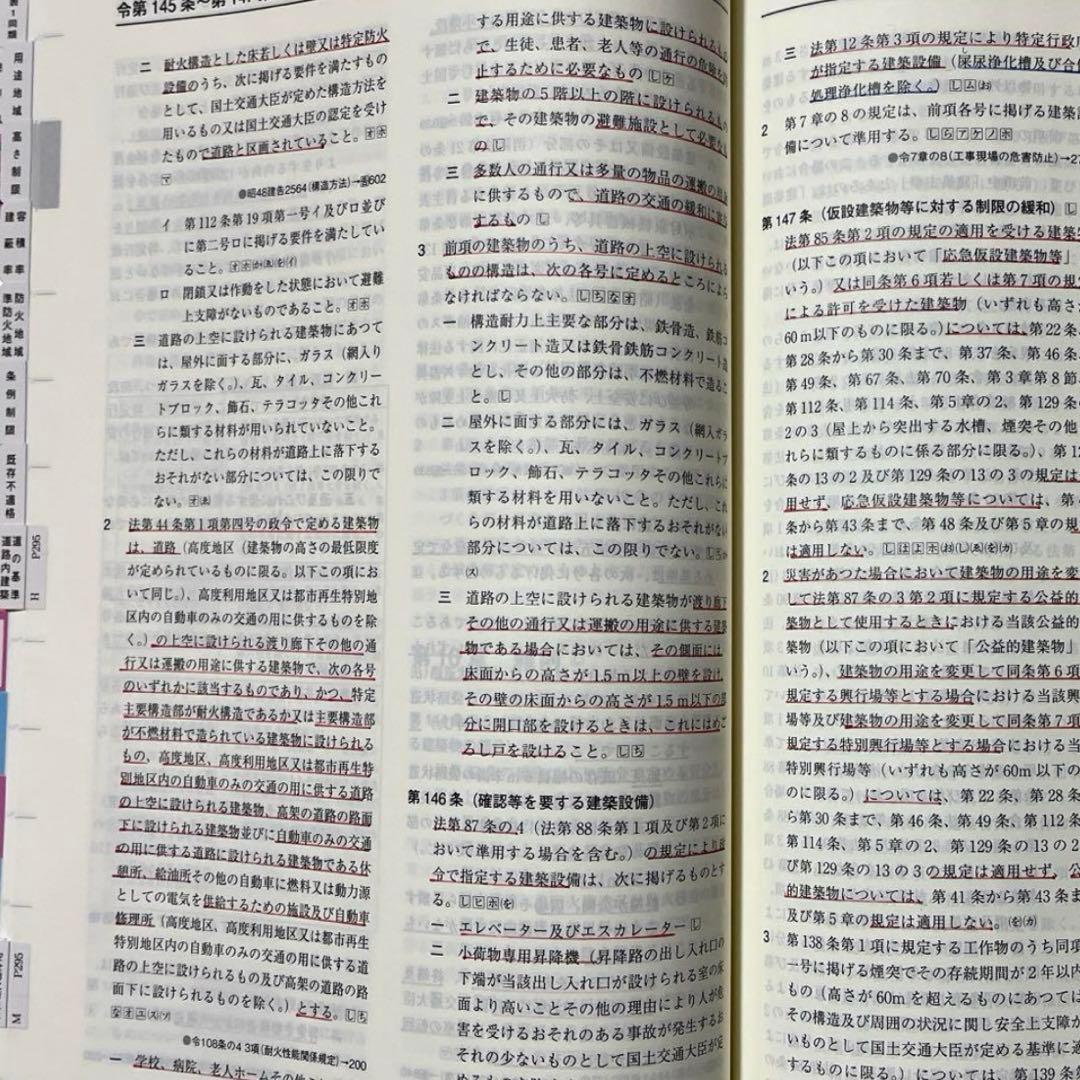 令第145条〜第14
二 耐火構造とした床若しくは壁又は特定防火
設備のうち、次に掲げる要件を満たすもの
として、国土交通大臣が定めた構造方法を
用いるもの又は国土交通大臣の認定を受け
たもので道路と区画されていること。
●昭48建告2564(構造方法)→告602
イ 第112条第19項第一号イ及びロ並び
に第二号ロに掲げる要件を満たしてい
ること。
ロ 閉鎖又は作動をした状態において避難
上支障がないものであること。
三 道路の上空に設けられる建築物にあつて
は、屋外に面する部分に、ガラス(網入り
ガラスを除く。)、瓦、タイル、コンクリー
トブロック、飾石、テラコッタその他これ
らに類する材料が用いられていないこと。
ただし、これらの材料が道路上に落下する
おそれがない部分については、この限りで
ない。
2 法第44条第1項第四号の政令で定める建築物
は、道路(高度地区(建築物の高さの最低限度
が定められているものに限る。以下この項にお
いて同じ。)、高度利用地区又は都市再生特別地
区内の自動車のみの交通の用に供するものを除
く。)の上空に設けられる渡り廊下その他の通
行又は運搬の用途に供する建築物で、次の各号
のいずれかに該当するものであり、かつ、特定
主要構造部が耐火構造であるか又は主要構造部
が不燃材料で造られている建築物に設けられる
もの、高度地区、高度利用地区又は都市再生特
別地区内の自動車のみの交通の用に供する道路
の上空に設けられる建築物、高架の道路の路面
下に設けられる建築物並びに自動車のみの交通
の用に供する道路に設けられる建築物である休
憩所、給油所その他の自動車に燃料又は動力源
としての電気を供給するための施設及び自動車
修理所(高度地区、高度利用地区又は都市再生
特別地区内の自動車のみの交通の用に供する道
路の上空に設けられるもの及び高架の道路の路
面下に設けられるものを除く。)とする。
●令108条の4 3項(耐火性能関係規定)→200
一 学校、病院、老人ホームその他
する用途に供する建築物に設けられるもの
で、生徒、患者、老人等の通行の危険を防
止するために必要なもの
二 建築物の5階以上の階に設けられるもの
で、その建築物の避難施設として必要なも
の
三 多数人の通行又は多量の物品の運搬の用途
に供するもので、道路の交通の緩和に寄与
するもの
3 前項の建築物のうち、道路の上空に設けられる
ものの構造は、次の各号に定めるところによら
なければならない。
一 構造耐力上主要な部分は、鉄骨造、鉄筋コ
ンクリート造又は鉄骨鉄筋コンクリート造
とし、その他の部分は、不燃材料で造るこ
と。
二 屋外に面する部分には、ガラス(網入ガラ
スを除く。)、瓦、タイル、コンクリートブ
ロック、飾石、テラコッタその他これらに
類する材料を用いないこと。ただし、これ
らの材料が道路上に落下するおそれがない
部分については、この限りでない。
三 道路の上空に設けられる建築物が渡り廊下
その他の通行又は運搬の用途に供する建築
物である場合においては、その側面には
床面からの高さが1.5m以上の壁を設け、
その壁の床面からの高さが1.5m以下の部
分に開口部を設けるときは、これにはめご
ろし戸を設けること。
第146条(確認等を要する建築設備)
法第87条の4(法第88条第1項及び第2項に
おいて準用する場合を含む。)の規定により政
令で指定する建築設備は、次に掲げるものとす
る。
一 エレベーター及びエスカレーター
二 小荷物専用昇降機(昇降路の出し入れ口の
下端が当該出し入れ口が設けられる室の床
面より高いことその他の理由により人が危
害を受けるおそれのある事故が発生するお
それの少ないものとして国土交通大臣が定
三 法第12条第3項の規定により特定行政庁
が指定する建築設備(屎尿浄化槽及び合併
処理浄化槽を除く。)
2 第7章の8の規定は、前項各号に掲げる建築設
備について準用する。
●令7章の8(工事現場の危害防止)→2
第147条(仮設建築物等に対する制限の緩和)
法第85条第2項の規定の適用を受ける建築物
(以下この項において「応急仮設建築物等」と
いう。)又は同条第6項若しくは第7項の規定
による許可を受けた建築物(いずれも高さが
60m以下のものに限る。)については、第22条
第28条から第30条まで、第37条、第46条
第49条、第67条、第70条、第3章第8節
第112条、第114条、第5章の2、第129条の
2の3(屋上から突出する水槽、煙突その他
れらに類するものに係る部分に限る。)、第12
条の13の2及び第129条の13の3の規定は適
用せず、応急仮設建築物等については、第4
条から第43条まで、第48条及び第5章の規
は適用しない。
2 災害があつた場合において建築物の用途を変
して法第87条の3第2項に規定する公益的
築物として使用するときにおける当該公益的
築物(以下この項において「公益的建築物」
いう。)、建築物の用途を変更して同条第6項
規定する興行場等とする場合における当該興
場等及び建築物の用途を変更して同条第7項
規定する特別興行場等とする場合における当
特別興行場等(いずれも高さが60m以下の
のに限る。)については、第22条、第28条
ら第30条まで、第46条、第49条、第112条
第114条、第5章の2、第129条の13の2
び第129条の13の3の規定は適用せず、公
的建築物については、第41条から第43条ま
及び第5章の規定は適用しない。
3 第138条第1項に規定する工作物のうち同項
一号に掲げる煙突でその存続期間が2年以内
もの(高さが60mを超えるものにあつては
その構造及び周囲の状況に関し安全上支障が
いものとして国土交通大臣が定める基準に適
するものに限る。)については、第139条第
用途地域
高さ制限
容積率
建蔽率
防火地域
準防火地域
条例制限
既存不適格
P295
道の基準
道路内建築
H
P295
M